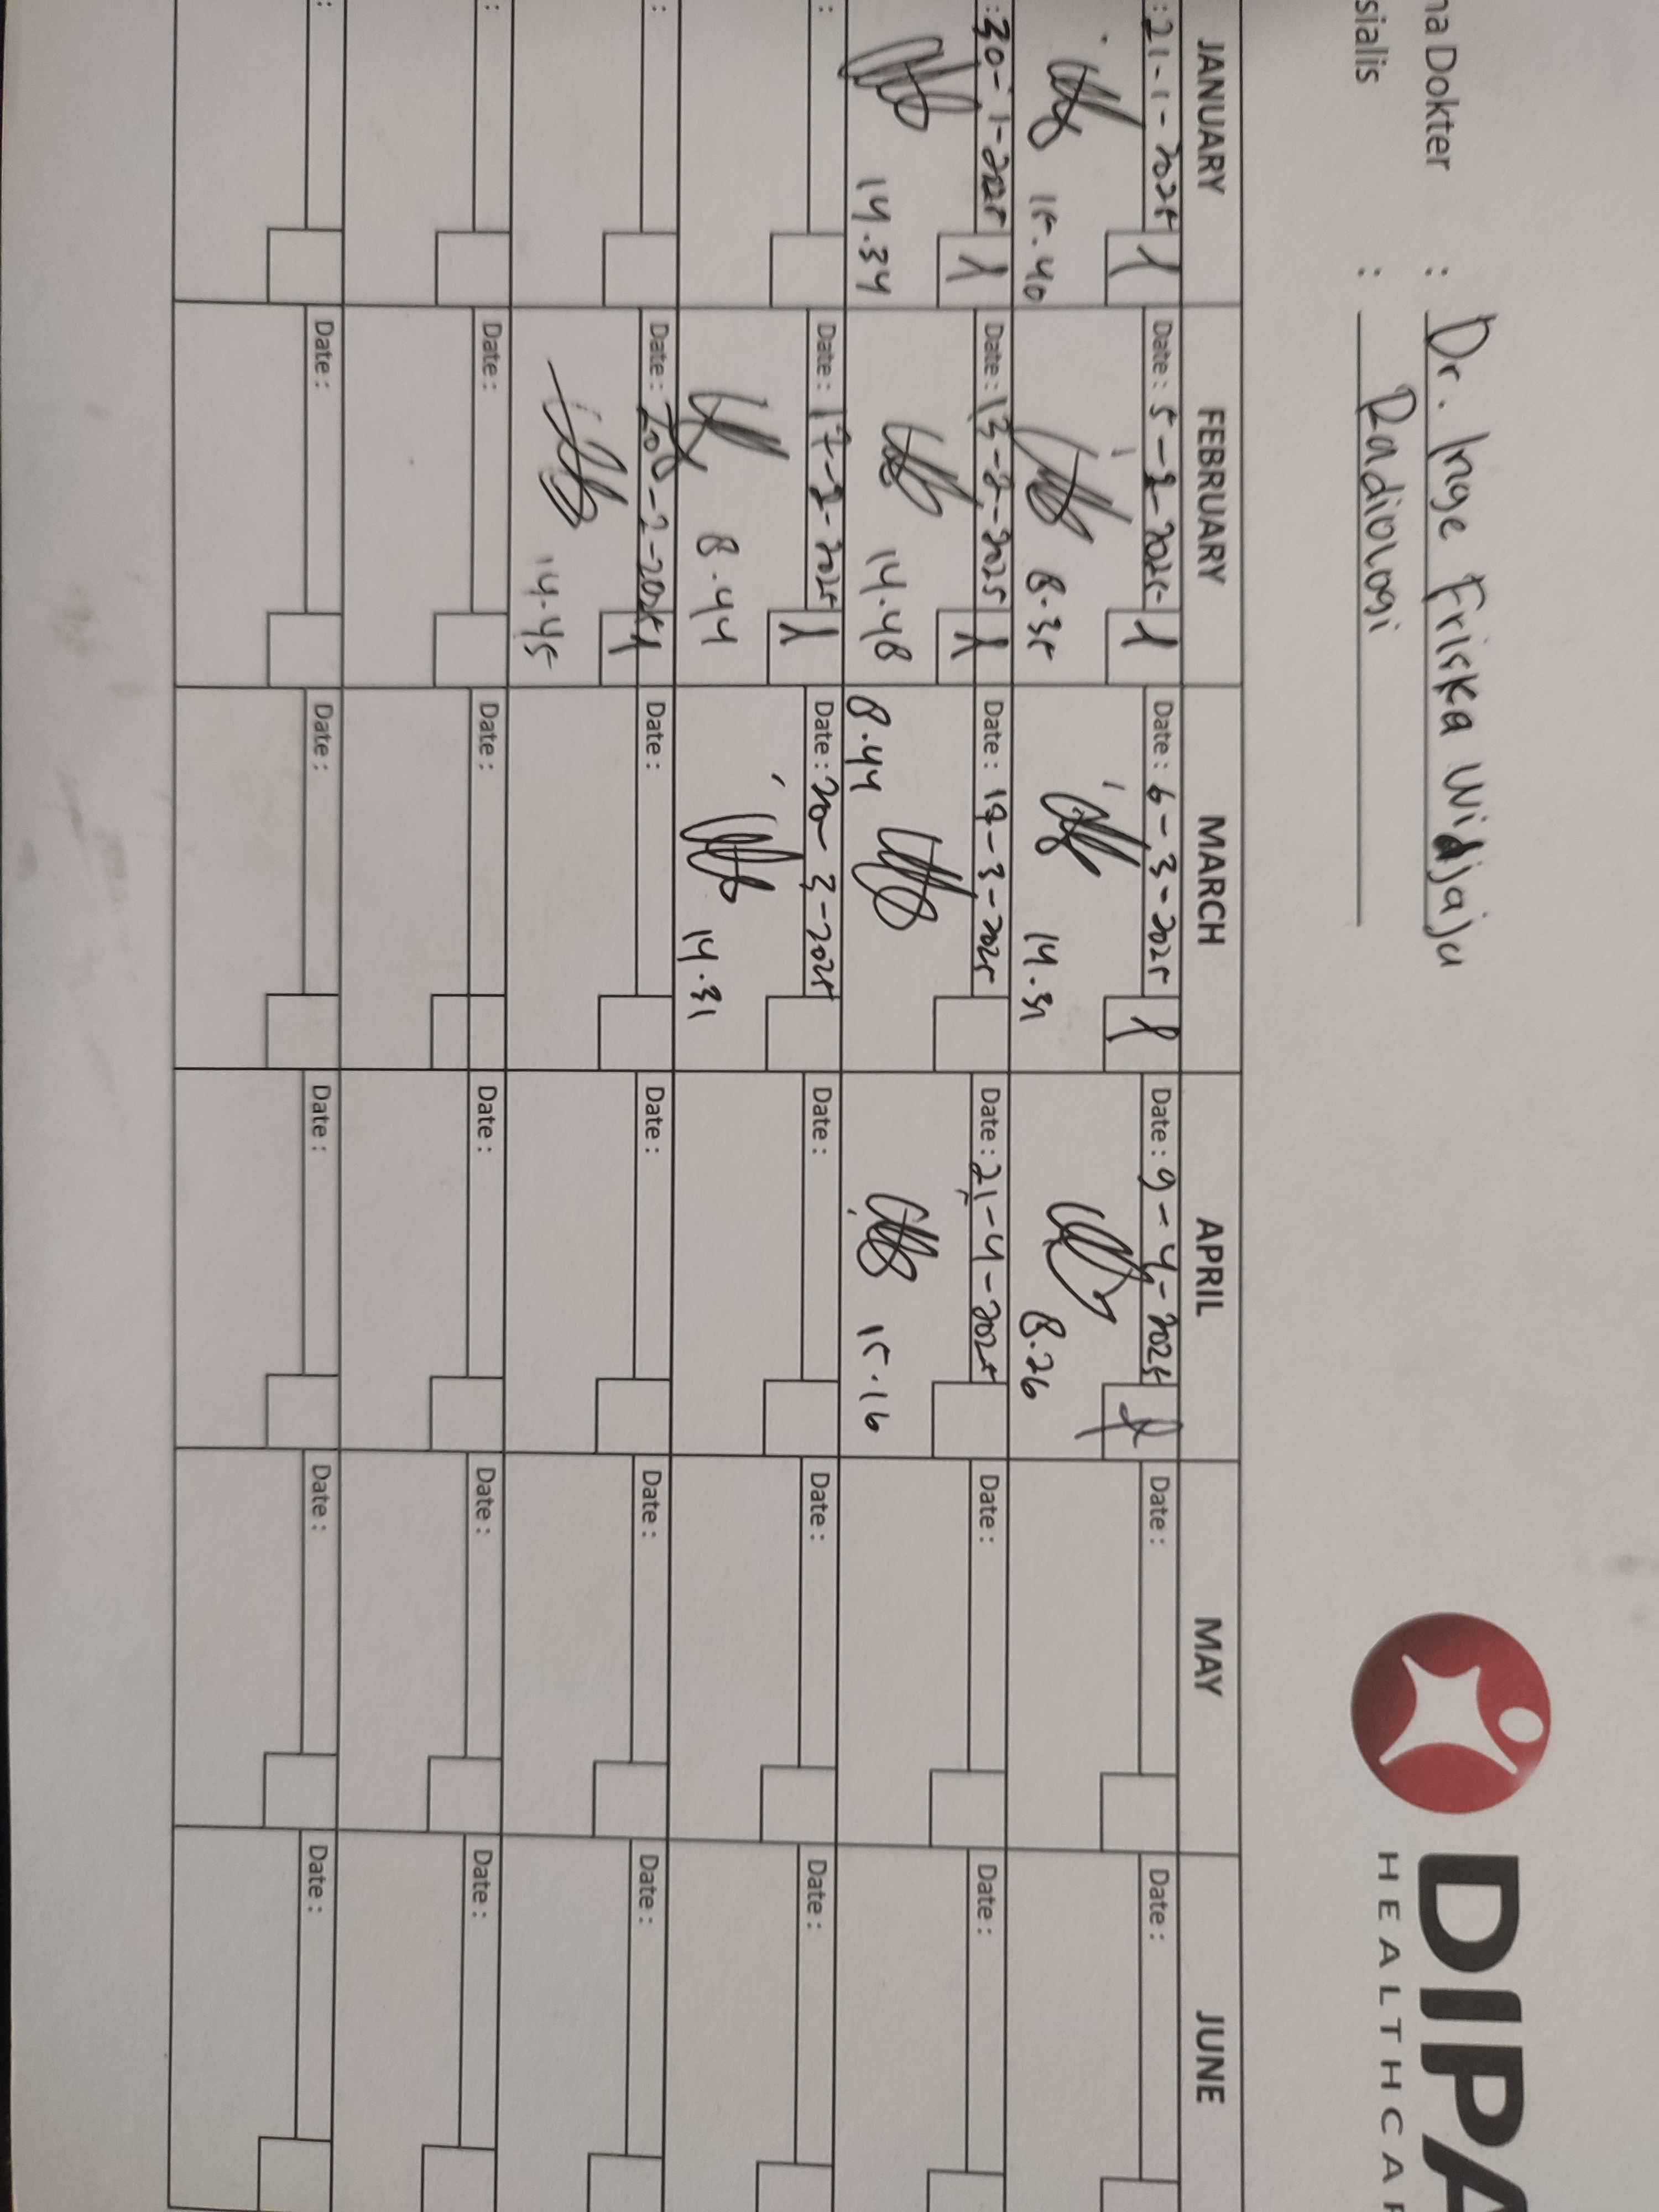 na Dokter : Dr. Inge Friska Widjaja
sialis : Radiologi
DIPA
HEALTHCAR
JANUARY FEBRUARY MARCH APRIL MAY JUNE
: 21-1-2025 1 Date : 5-2-2025 1 Date : 6-3-2025 1 Date : 9-4-2025 Date : Date :
15.40 8.35 14.31 8.26
: 30-1-2025 1 Date : 13-2-2025 1 Date : 19-3-2025 Date : 21-4-2025 Date : Date :
14.34 14.48 8.44 15.16
: Date : 17-2-2025 1 Date : 20-3-2025 Date : Date : Date :
8.44 14.31
: Date : 20-2-2025 1 Date : Date : Date : Date :
14.45
: Date : Date : Date : Date : Date :
: Date : Date : Date : Date : Date :